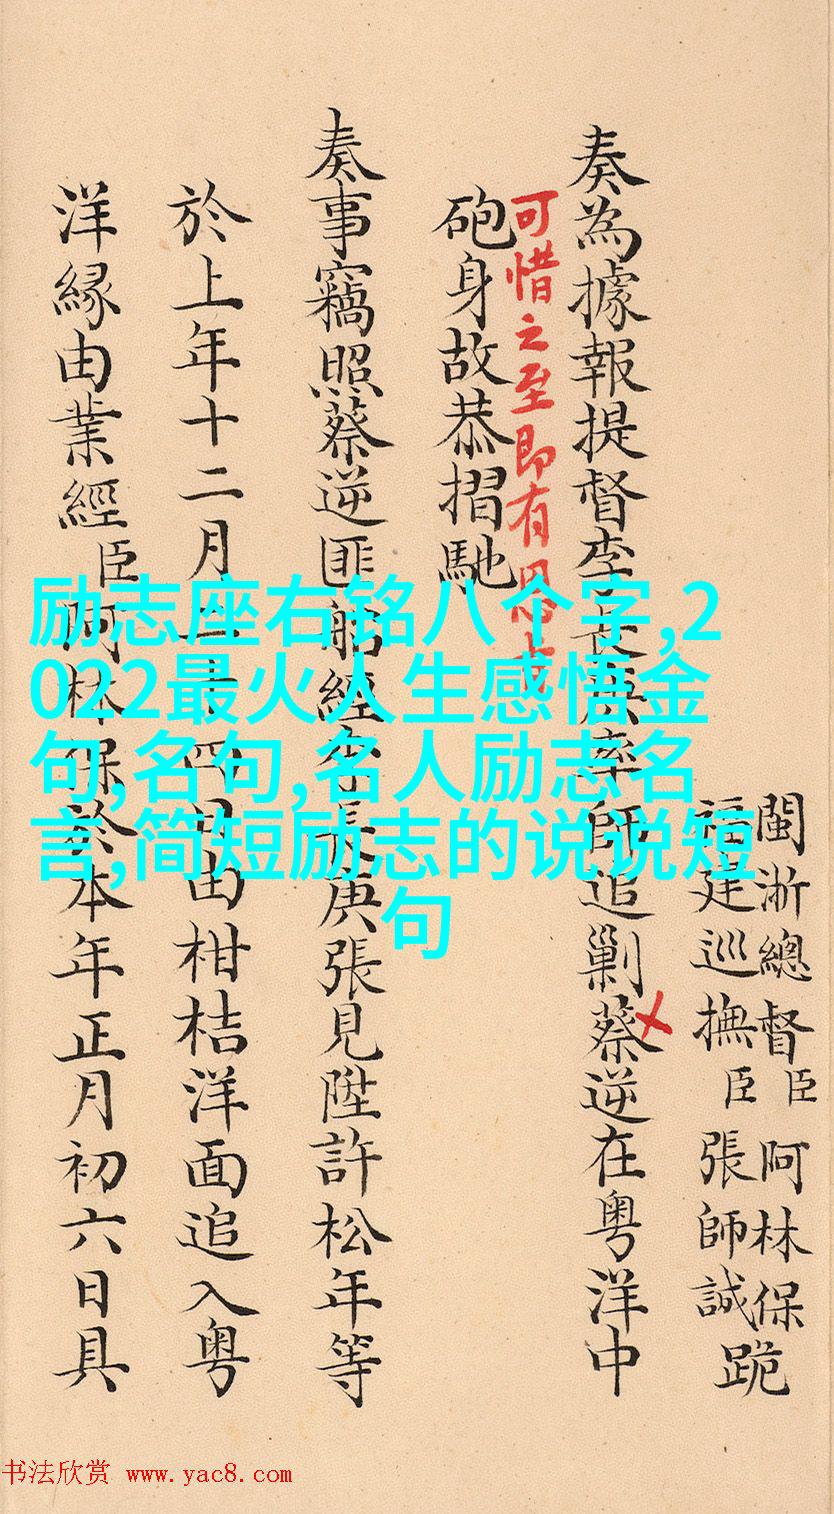 閩淅總督臣阿林保
福建巡撫臣張師誠
跪
奏為據報提督李長庚率師追剿蔡逆在粤洋中
可惜之至即有恩旨
砲身故恭摺馳
奏事竊照蔡逆匪船經李長庚張見陞許松年等
於上年十二月二十四日由柑桔洋面追入粤
洋緣由業經臣阿林保於本年正月初六日具
励志座右铭八个字,2
022最火人生感悟金
句,名句,名人励志名
言,简短励志的说说短
句
书法欣赏 www.yac8.com